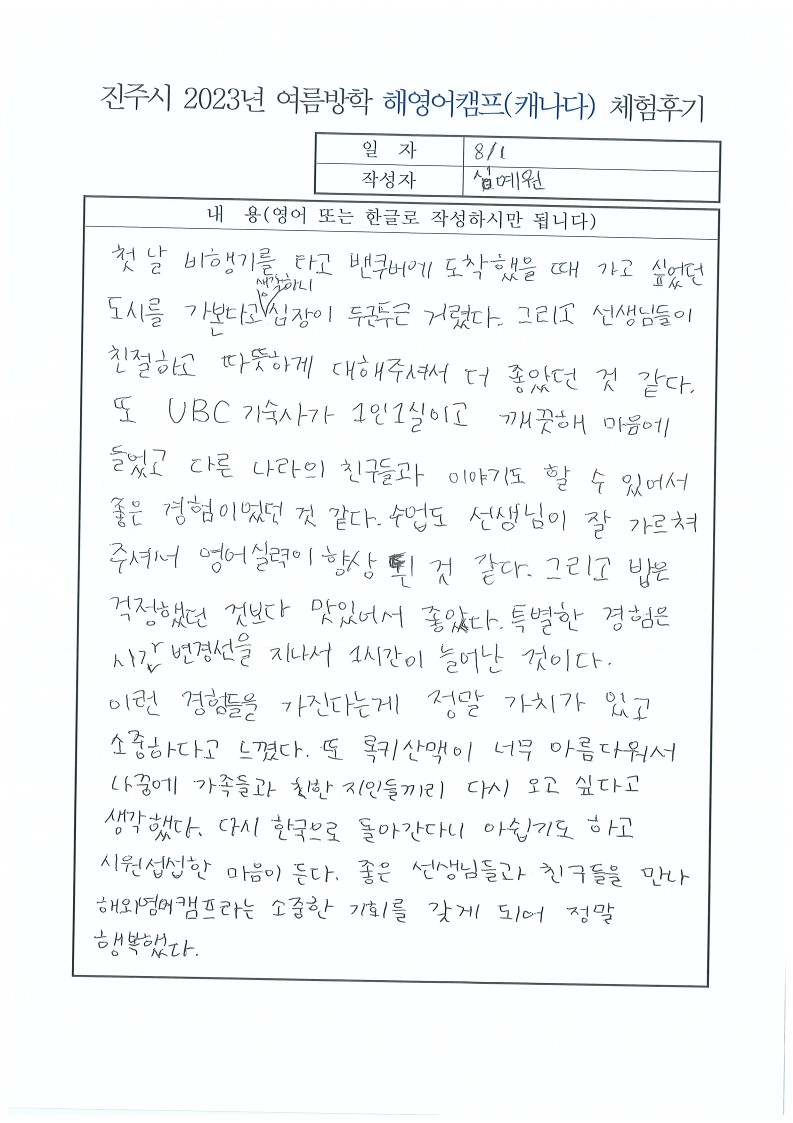 진주시 2023년 여름방학 해영어캠프(캐나다) 체험후기
일 자 8/1
작성자 심예원
내 용(영어 또는 한글로 작성하시만 됩니다)
첫 날 비행기를 타고 밴쿠버에 도착했을 때 가고 싶었던
도시를 가본다고 생각하니 심장이 두군두근 거렸다. 그리고 선생님들이
친절하고 따뜻하게 대해주셔서 더 좋았던 것 같다.
또 UBC 기숙사가 1인1실이고 깨끗해 마음에
들었고 다른 나라의 친구들과 이야기도 할 수 있어서
좋은 경험이었던 것 같다. 수업도 선생님이 잘 가르쳐
주셔서 영어실력이 향상 된 것 같다. 그리고 밥은
걱정했던 것보다 맛있어서 좋았다. 특별한 경험은
시간 변경선을 지나서 1시간이 늘어난 것이다.
이런 경험들을 가진다는게 정말 가치가 있고
소중하다고 느꼈다. 또 록키산맥이 너무 아름다워서
나중에 가족들과 친한 지인들끼리 다시 오고 싶다고
생각했다. 다시 한국으로 돌아간다니 아쉽기도 하고
시원섭섭한 마음이 든다. 좋은 선생님들과 친구들을 만나
해외영어캠프라는 소중한 기회를 갖게 되어 정말
행복했다.